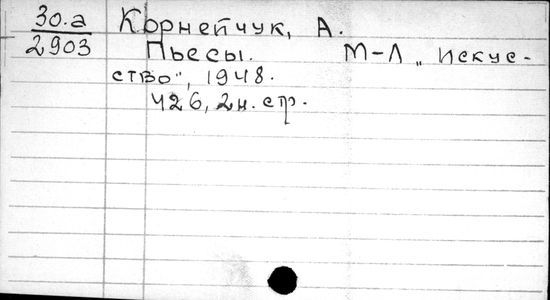 30.а Корнейчук, А.
2903 Пьесы. М-Л „Искус-
ство", 1948.
426, 2н. стр.